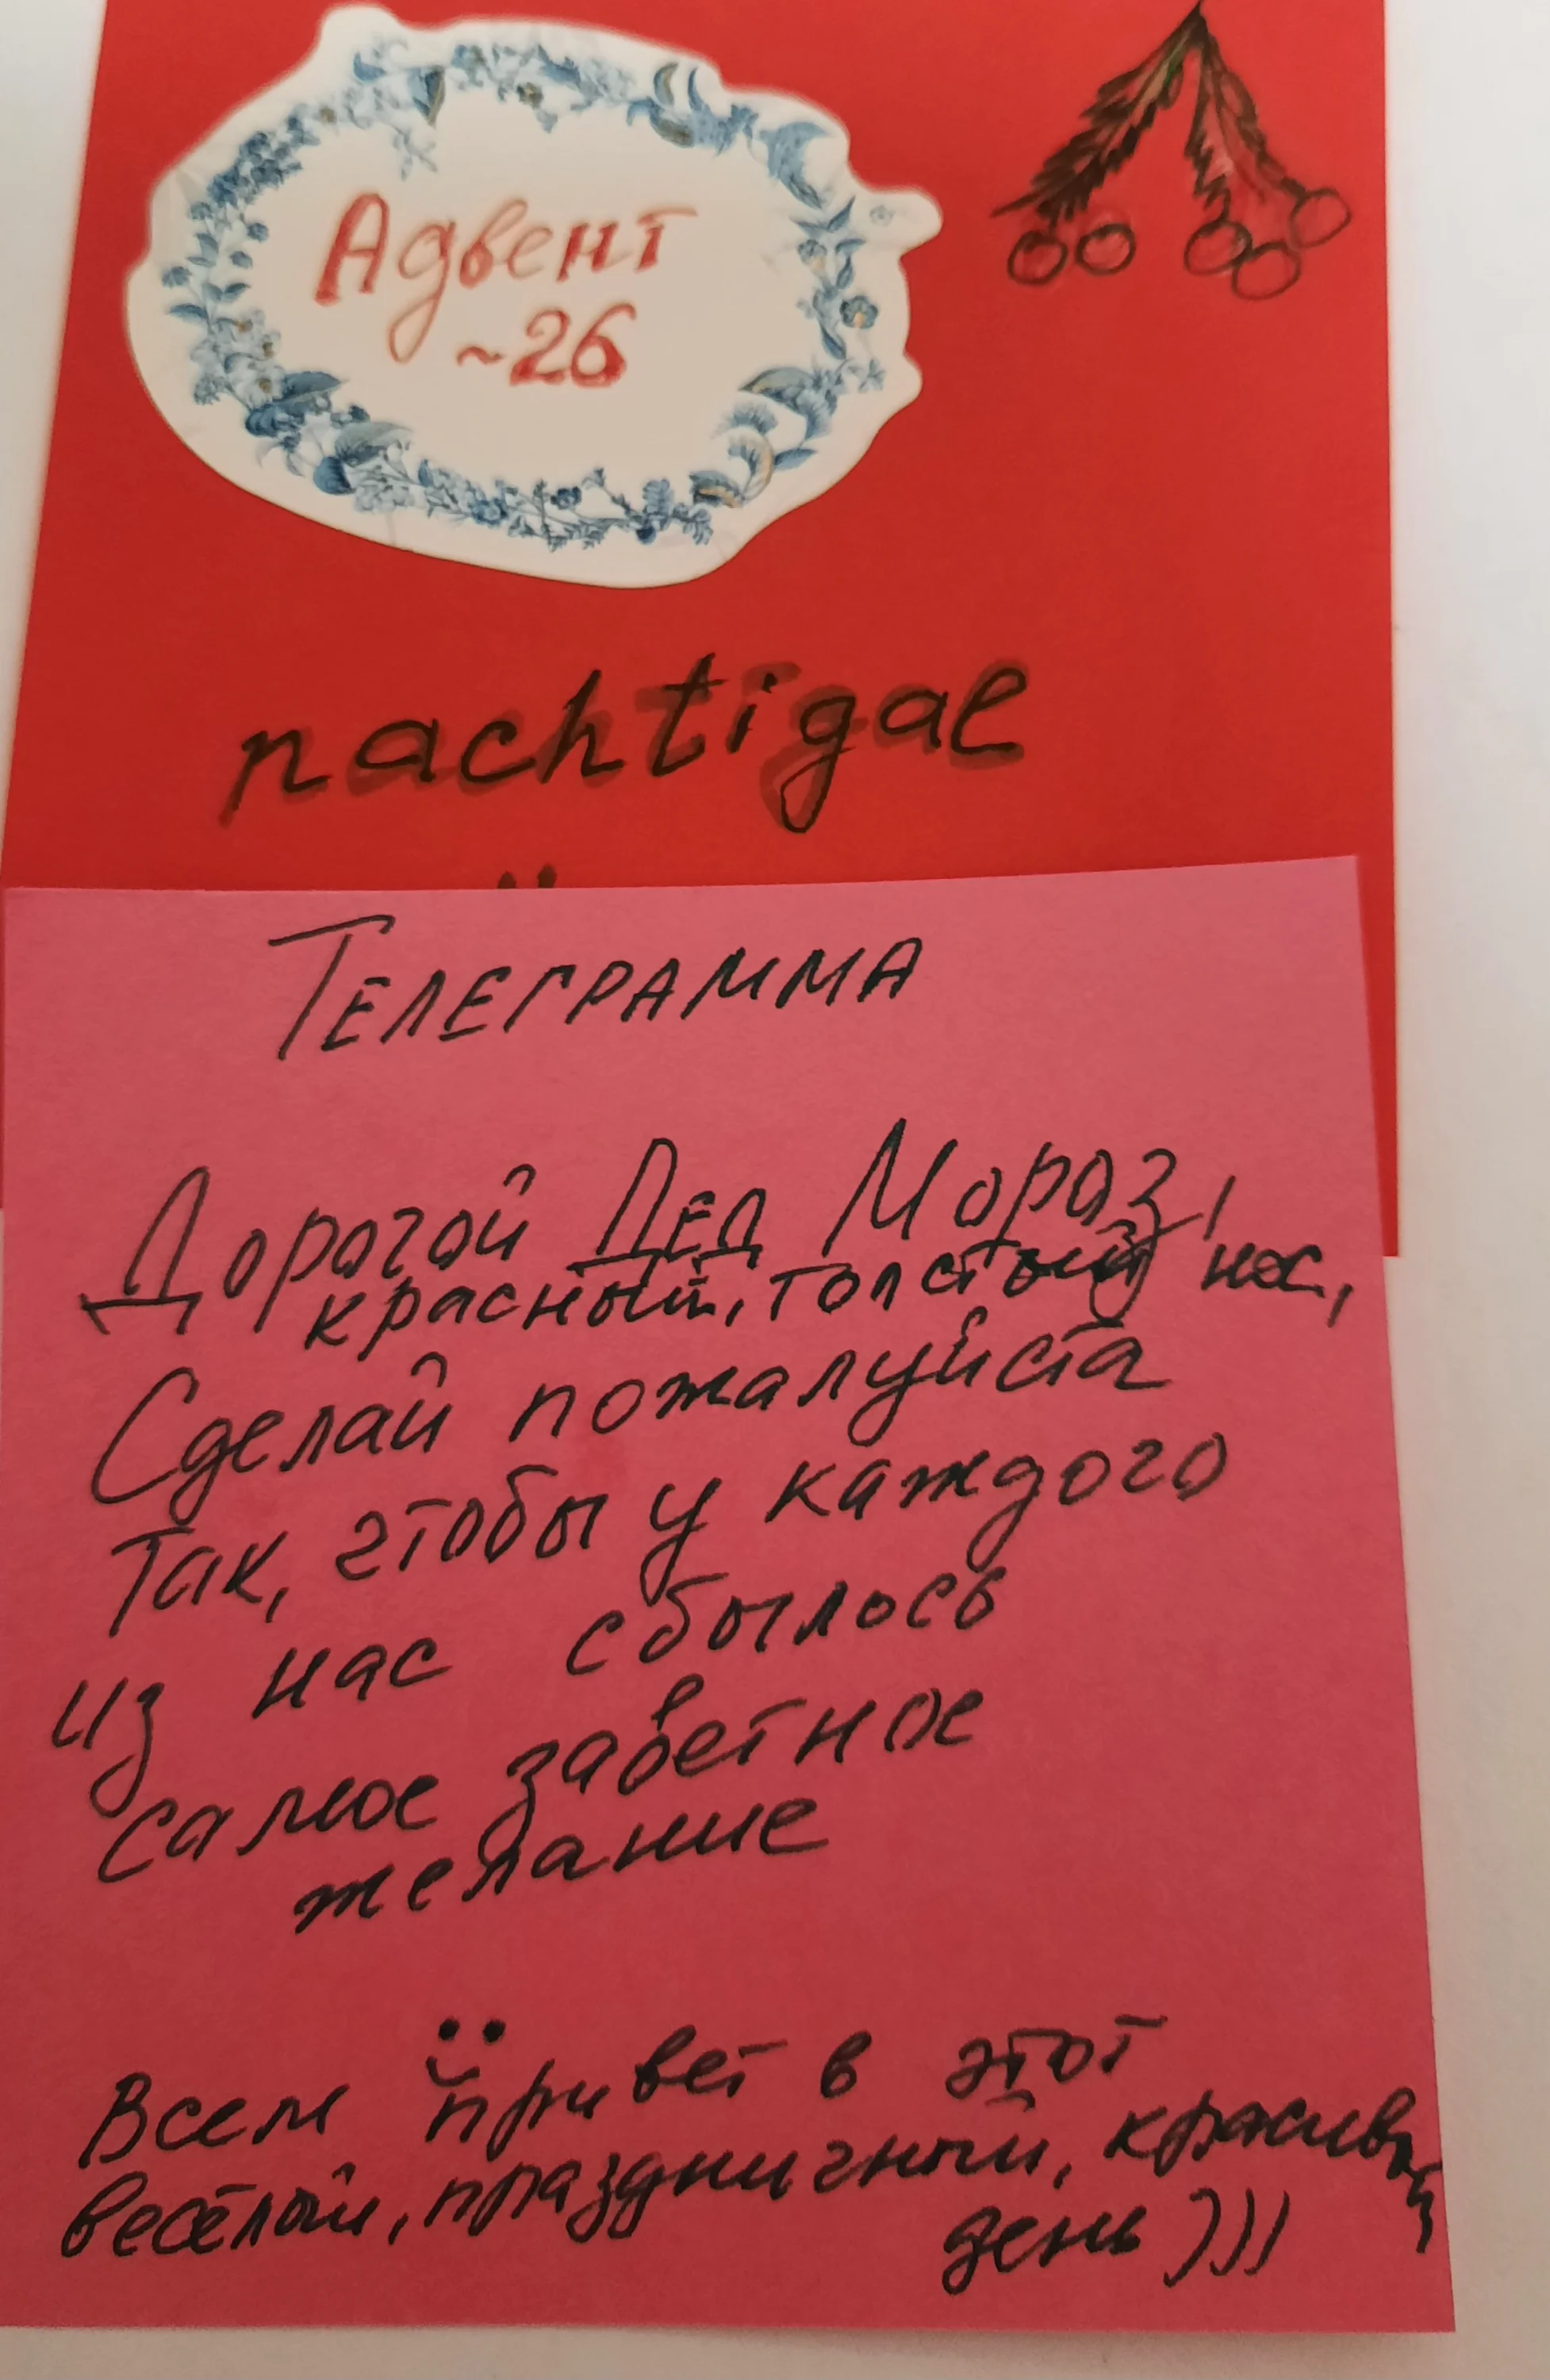 Адвент
~26
nachtigal
Телеграмма
Дорогой Дед Мороз,
красный, толстый нос,
Сделай пожалуйста
так, чтобы у каждого
из нас сбылось
самое заветное
желание
Всем привет в этот
весёлый, праздничный, красивый
день)))